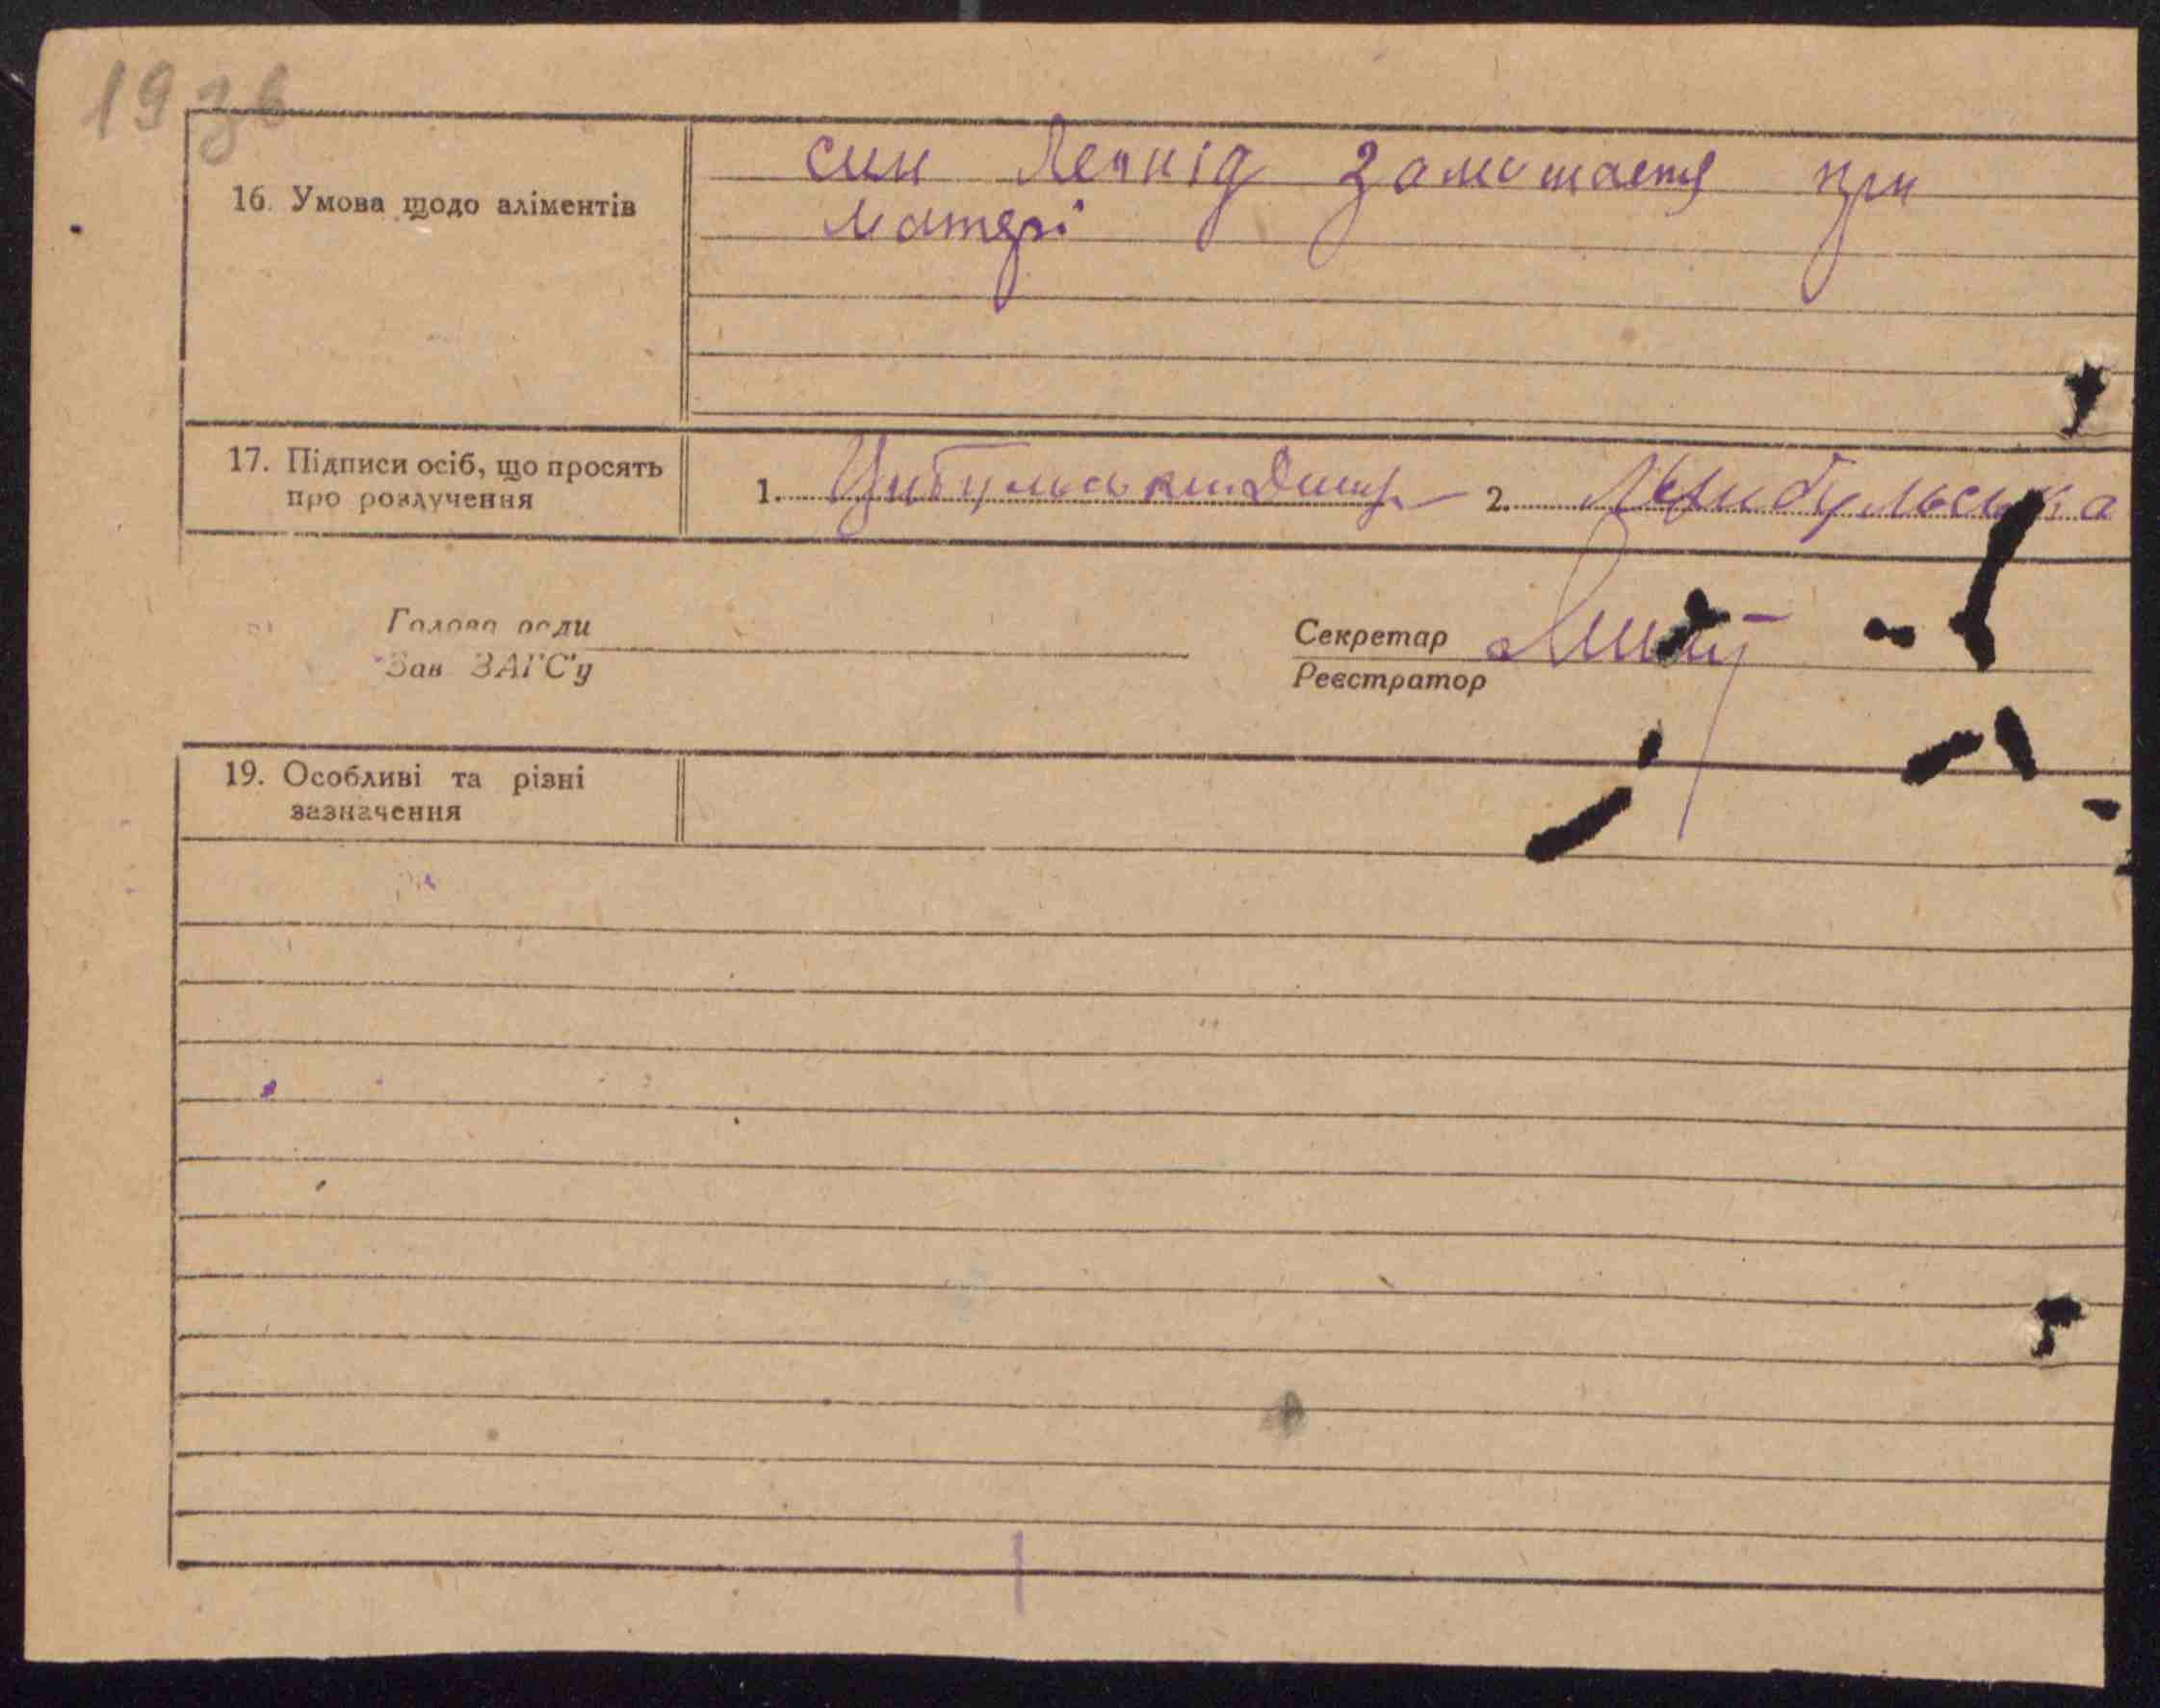 19 зв
16. Умова щодо аліментів
син Леонід залишаеться при
матері
17. Підписи осіб, що просять
про розлучення
1. Цибульський 2. Цибульська
Голова ради
Зав ЗАГС'у
Секретар
Реєстратор
19. Особливі та різні
зазначення